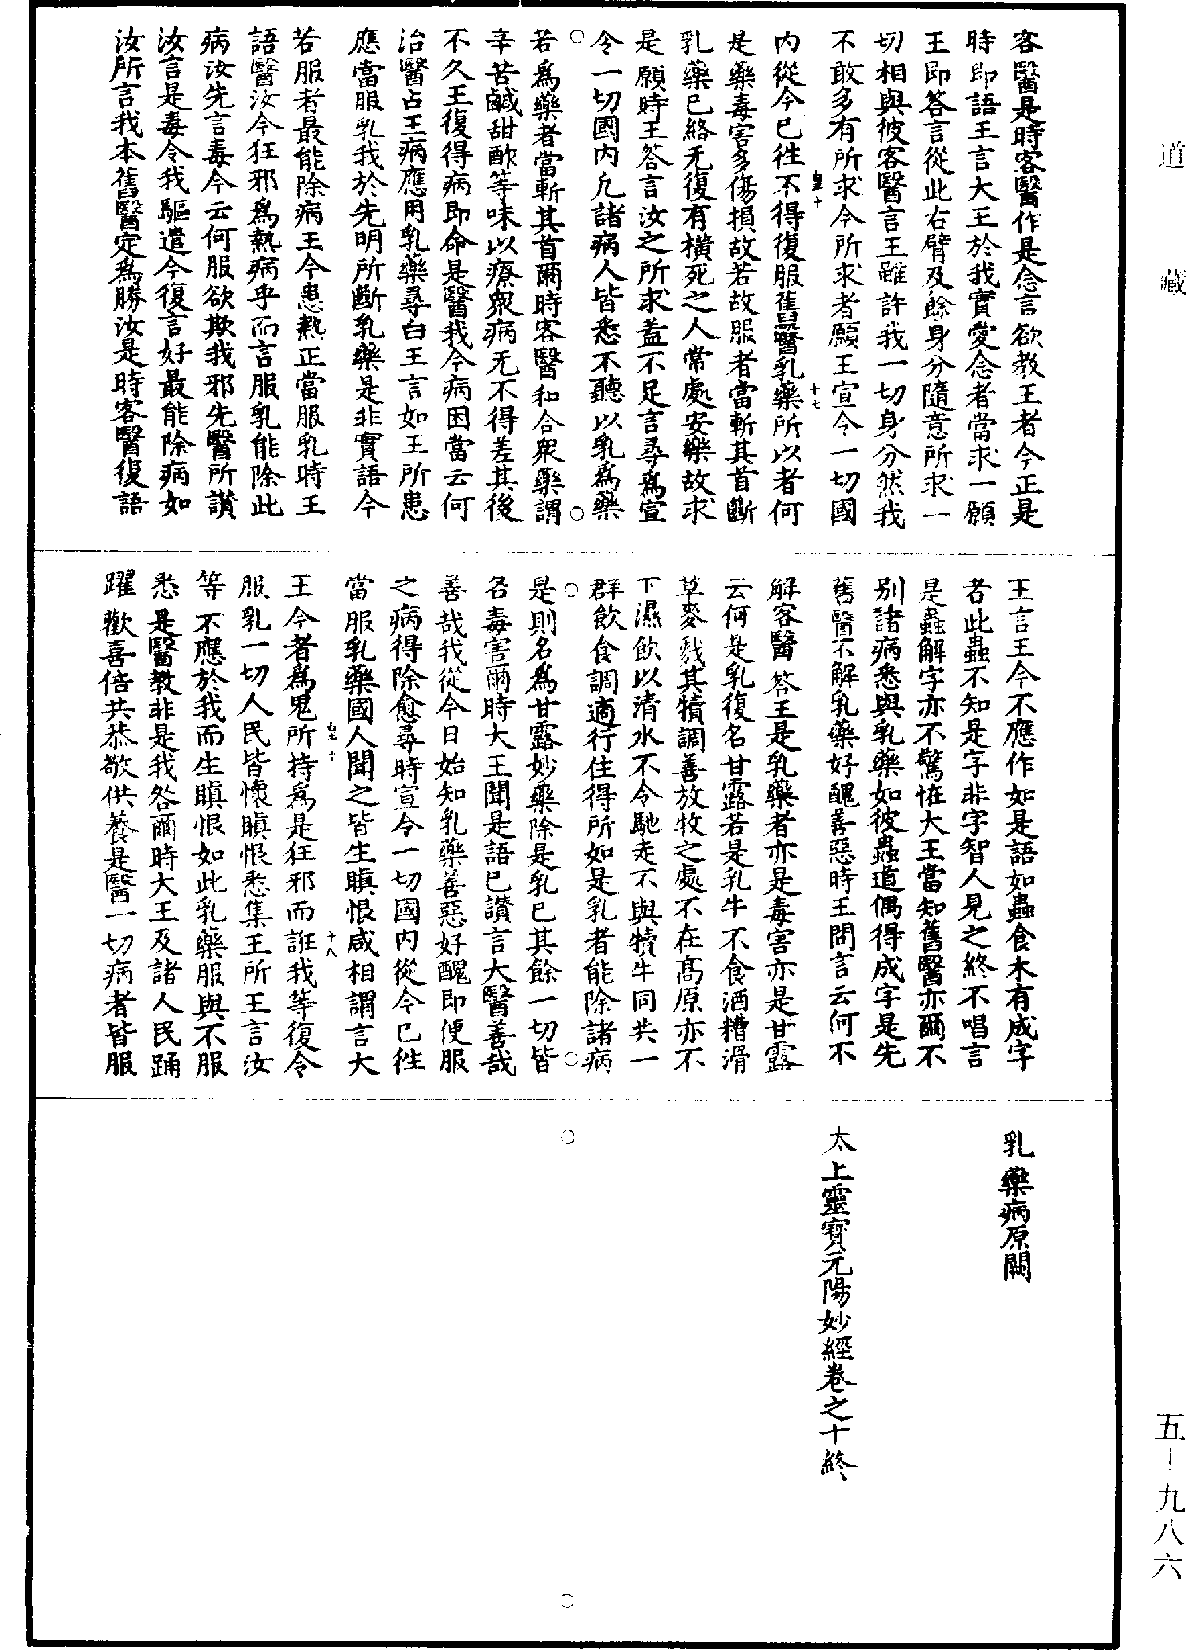 道藏
客醫是時客醫作是念言欲教王者今正是
時即語王言大王於我實愛念者當求一願
王即答言從此右臂及餘身分隨意所求一
切相與彼客醫言王雖許我一切身分然我
不敢多有所求今所求者願王宣令一切國
內從今已往不得復服舊醫乳藥所以者何
是藥毒害多傷損故若故服者當斬其首斷
乳藥已終无復有橫死之人常處安樂故求
是願時王答言汝之所求蓋不足言尋為宣
令一切國內凢諸病人皆悉不聽以乳為藥
若為藥者當斬其首爾時客醫和合眾藥謂
辛苦鹹甜酢等味以療眾病无不得差其後
不久王復得病即命是醫我今病困當云何
治醫占王病應用乳藥尋白王言如王所患
應當服乳我於先明所斷乳藥是非實語今
若服者最能除病王今患熱正當服乳時王
語醫汝今狂邪為熱病乎而言服乳能除此
病汝先言毒今云何服欲欺我邪先醫所讚
汝言是毒令我驅遣今復言好最能除病如
汝所言我本舊醫定為勝汝是時客醫復語
十七
王言王今不應作如是語如蟲食木有成字
者此蟲不知是字非字智人見之終不唱言
是蟲解字亦不驚恠大王當知舊醫亦爾不
別諸病悉與乳藥如彼蟲道偶得成字是先
舊醫不解乳藥好醜善惡時王問言云何不
解客醫答王是乳藥者亦是毒害亦是甘露
云何是乳復名甘露若是乳牛不食酒糟滑
草麥䴬其犢調善放牧之處不在高原亦不
下濕飲以清水不令馳走不與犢牛同共一
群飲食調適行住得所如是乳者能除諸病
是則名為甘露妙藥除是乳已其餘一切皆
名毒害爾時大王聞是語已讚言大醫善哉
善哉我從今日始知乳藥善惡好醜即便服
之病得除愈尋時宣令一切國內從今已往
當服乳藥國人聞之皆生瞋恨咸相謂言大
王今者為鬼所持為是狂邪而誑我等復令
服乳一切人民皆懷瞋恨悉集王所王言汝
等不應於我而生瞋恨如此乳藥服與不服
悉是醫教非是我咎爾時大王及諸人民踊
躍歡喜倍共恭敬供養是醫一切病者皆服
十八
乳藥病原闕
太上靈寶元陽妙經卷之十終
五-九八六